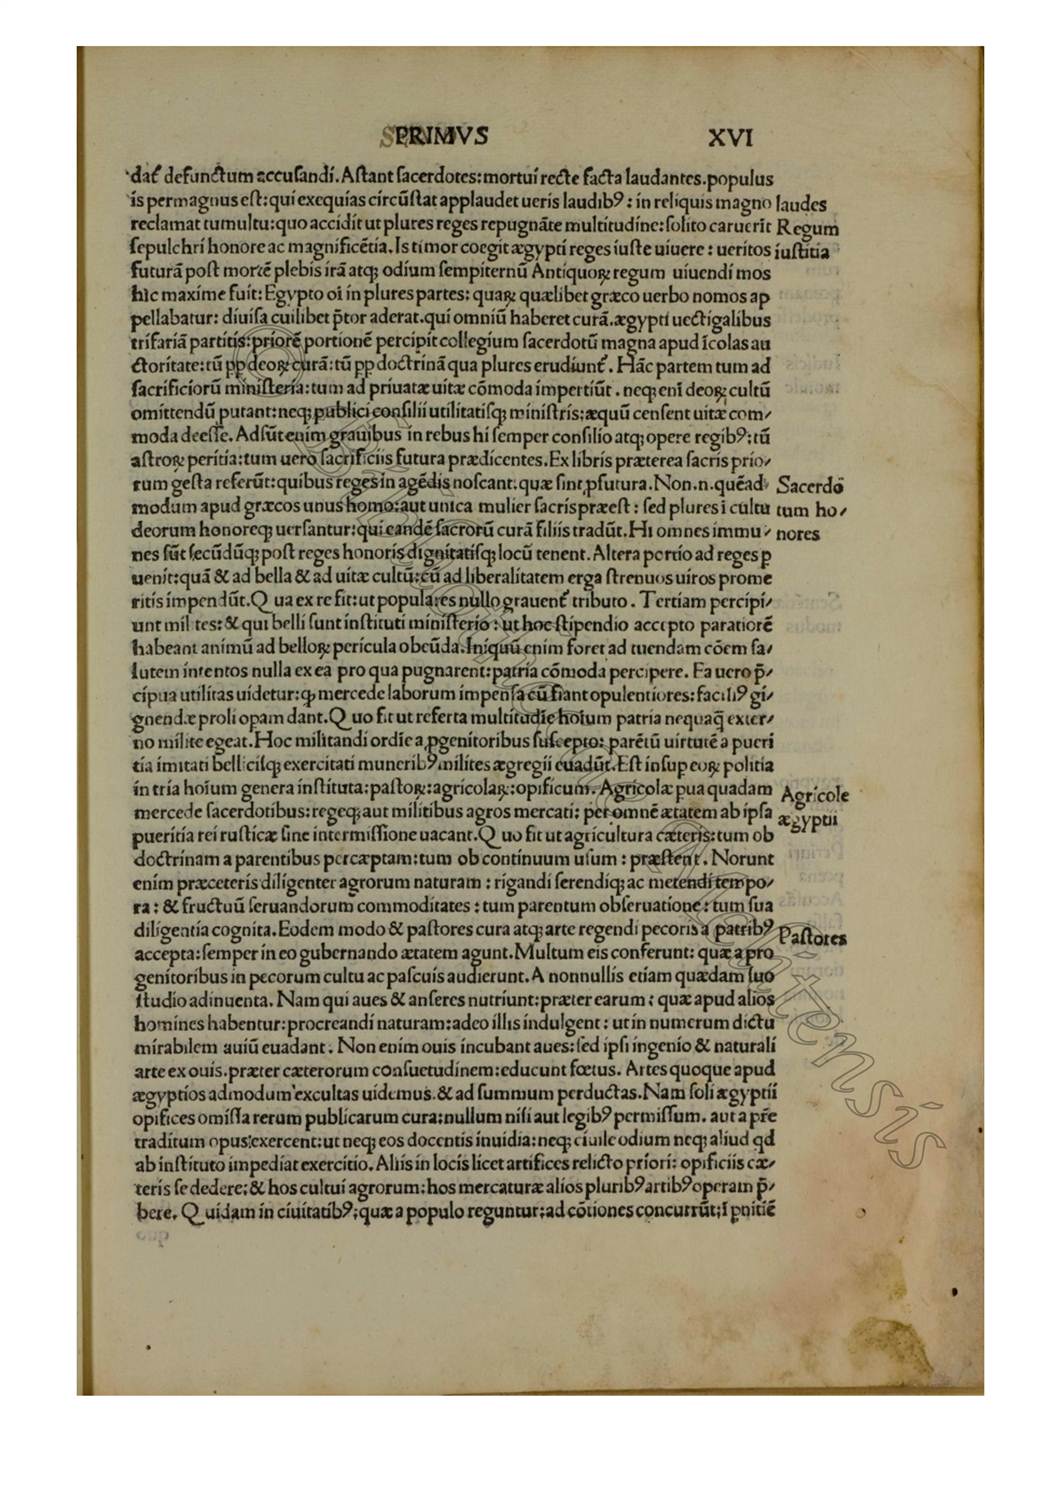 PRIMVS XVI
dat᷒ defunctum accusandi. Astant sacerdotes: mortui recte facta laudantes. populus
is permagnus est: qui exequias circūstat applaudet ueris laudibꝰ: in reliquis magno laudes
reclamat tumultu: quo accidit ut plures reges repugnāte multitudine: solito caruerīt Regum
sepulchri honore ac magnificētia. Is timor coegit ægypti reges iuste uiuere: ueritos iustitia
futurā post mortē plebis irā atqꝫ odium sempiternū Antiquoꝝ regum uiuendi mos
hic maxime fuit: Egypto oī in plures partes: quaꝝ quælibet græco uerbo nomos ap
pellabatur: diuisa cuilibet p̄tor aderat. qui omniū haberet curā. ægypti uectigalibus
trifariā partitis: priorē portionē percipit collegium sacerdotū magna apud īcolas au
ctoritate: tū ꝓp deoꝝ curā: tū ꝓp doctrinā qua plures erudiunt᷒. Hāc partem tum ad
sacrificiorū ministeria: tum ad priuatæ uitæ cōmoda impertiūt. neqꝫ enī deoꝝ cultū
omittendū putant: neqꝫ publici consilii utilitatisqꝫ ministris: æquū censent uitæ com/
moda deesse. Adsūt enim grauibus in rebus hi semper consilio atqꝫ opere regibꝰ: tū
astroꝝ peritia: tum uero sacrificiis futura prædicentes. Ex libris præterea sacris prio/
rum gesta referūt: quibus reges in agēdis noscant. quæ sint ꝓfutura. Non .n. quēad
Sacerdo
modum apud græcos unus homo: aut unica mulier sacris præest: sed plures ī cultu tum ho/
deorum honoreqꝫ uersantur: qui eandē sacrorū curā filiis tradūt. Hi omnes immu/ nores
nes sūt secūdūqꝫ post reges honoris dignitatisqꝫ locū tenent. Altera portio ad reges ꝑ
uenit: quā & ad bella & ad uitæ cultū: cū ad liberalitatem erga strenuos uiros prome
ritis impendūt. Qua ex re fit: ut populares nullo grauent᷒ tributo. Tertiam percipi/
unt milites: & qui belli sunt instituti ministerio: ut hoc stipendio accepto paratiorē
habeant animū ad belloꝝ pericula obeūda. Iniquū enim foret ad tuendam cōem sa/
lutem intentos nulla ex ea pro qua pugnarent: patria cōmoda percipere. Ea uero p̄/
cipua utilitas uidetur: qꝫ mercede laborum impensa cū fiant opulentiores: faciliꝰ gi/
gnendæ proli opam dant. Quo fit ut referta multitudīe hoium patria nequaq̄ exter/
no milite egeat. Hoc militandi ordīe a ꝓgenitoribus suscepto: parētū uirtutē a pueri
tia imitati bellicisqꝫ exercitati muneribꝰ milites ægregii euadūt. Est insuꝑ eoꝝ politia
in tria hoium genera instituta: pastoꝝ: agricolaꝝ: opificum. Agricolæ pua quadam
Agricole
mercede sacerdotibus: regeqꝫ aut militibus agros mercati: per omnē ætatem ab ipsa
ægyptii
pueritia rei rusticæ sine intermissione uacant. Quo fit ut agricultura cæteris: tum ob
doctrinam a parentibus percæptam: tum ob continuum usum: præstent. Norunt
enim præceteris diligenter agrorum naturam: rigandi serendiqꝫ ac metendi tempo/
ra: & fructuū seruandorum commoditates: tum parentum obseruatione: tum sua
diligentia cognita. Eodem modo & pastores cura atqꝫ arte regendi pecoris a patribꝰ
Pastores
accepta: semper in eo gubernando ætatem agunt. Multum eis conferunt: quæ a pro
genitoribus in pecorum cultu ac pascuis audierunt. A nonnullis etiam quædam suo
studio adinuenta. Nam qui aues & anseres nutriunt: præter earum: quæ apud alios
homines habentur: procreandi naturam: adeo illis indulgent: ut in numerum dictu
mirabilem auiū euadant. Non enim ouis incubant aues: sed ipsi ingenio & naturali
arte ex ouis. præter cæterorum consuetudinem: educunt fœtus. Artes quoque apud
ægyptios admodum excultas uidemus. & ad summum perductas. Nam soli ægyptii
opifices omissa rerum publicarum cura: nullum nisi aut legibꝰ permissum. aut a p̄re
traditum opus exercent: ut neqꝫ eos docentis inuidia: neqꝫ ciuile odium neqꝫ aliud qd
ab instituto impediat exercitio. Aliis in locis licet artifices relicto priori: opificiis cæ/
teris se dedere; & hos cultui agrorum: hos mercaturæ alios pluribꝰ artibꝰ operam p̄/
bere. Quidam in ciuitatibꝰ; quæ a populo reguntur; ad cōtiones concurrūt; ī ꝑnitiē